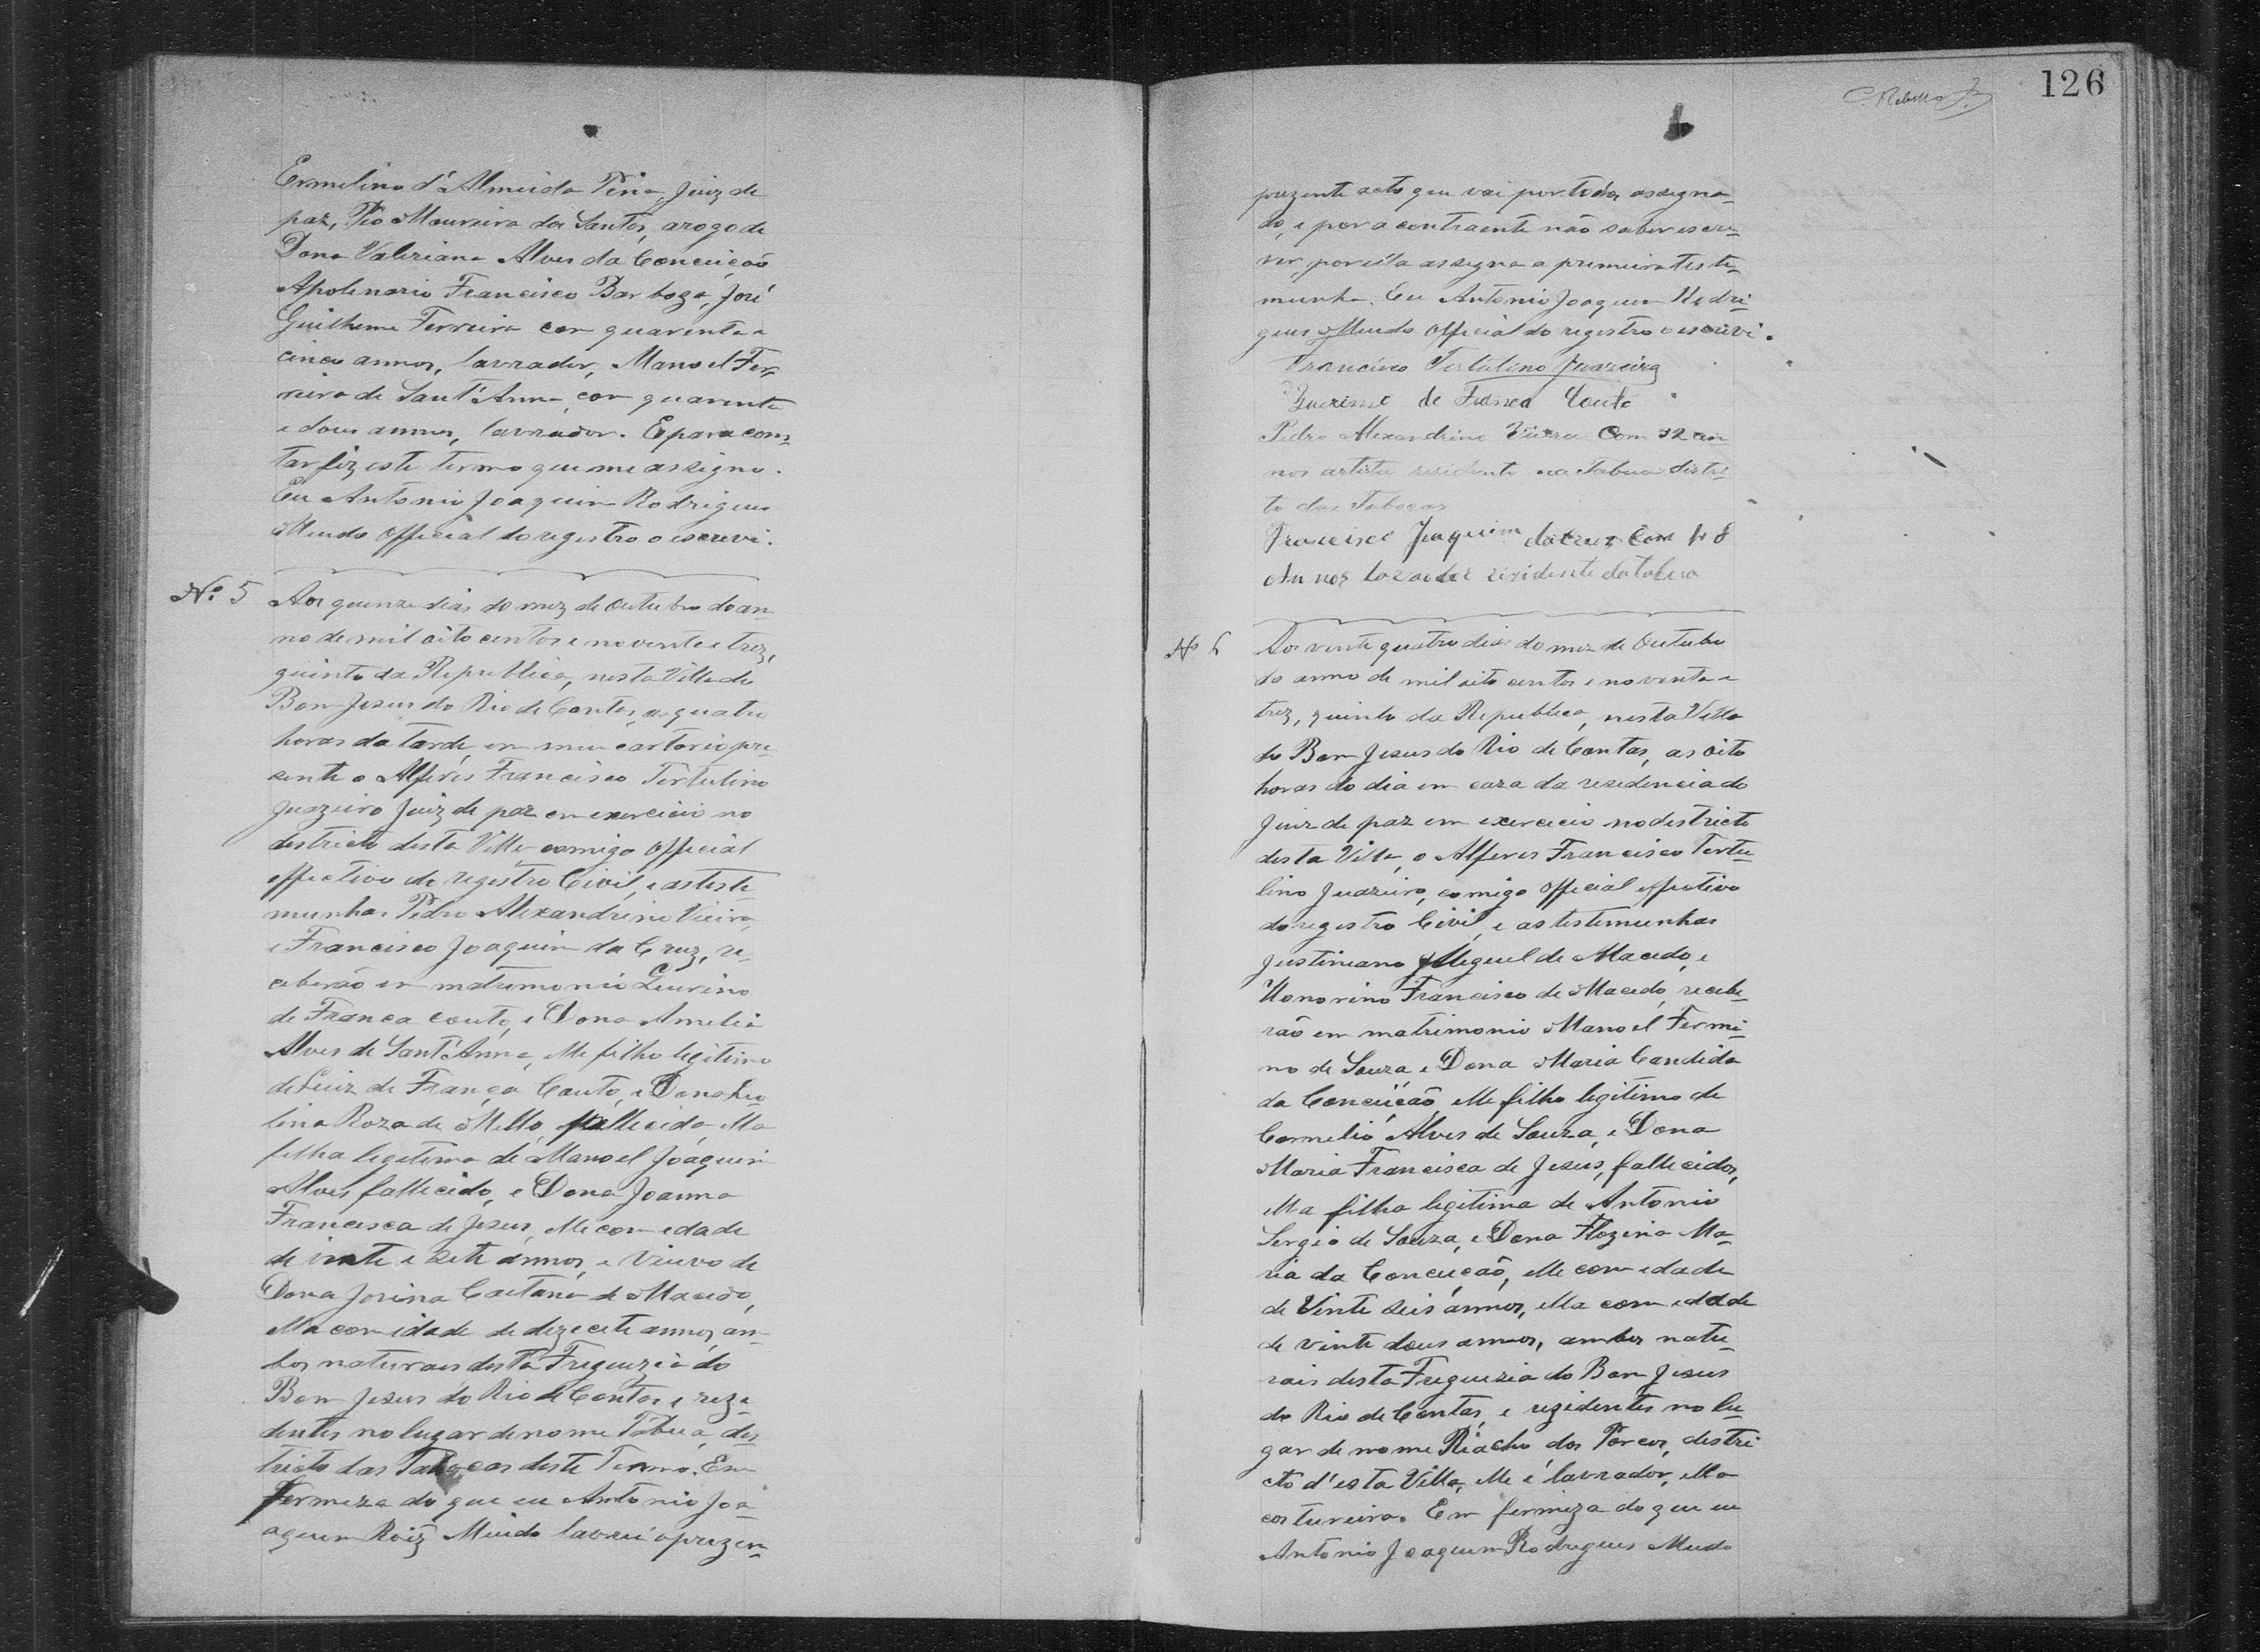 Ermelino d'Almeida Pina, Juiz de
paz, Pio Moureira dos Santos, arogo de
Dona Valeriana Alves da Conceicão
Apolenario Francisco Barboza, José
Guilherme Ferreira com quarenta e
cinco annos, lavrador, Manoel Fer-
reira de Sant'Anna com quarenta
e dous annos, lavrador. E para cons
tar fiz este termo que me assigno.
Eu Antonio Joaquim Rodrigues
Mundo Official do registro o escrevi.
Nº 5 Aos quinze dias do mez de Outubro do an-
no de mil oito centos e noventa e trez,
quinto da Republica, nesta Villa do
Bom Jesus do Rio de Contas, as quatro
horas da tarde, em meu cartorio pre-
sente o Alferes Francisco Tertulino
Juazeiro Juiz de paz em exercicio no
destricto desta Villa comigo Official
effectivo do registro Civil, e as teste
munhas Pedro Alexandrino Vieira,
e Francisco Joaquim da Cruz, re-
ceberão em matrimonio
de Franca Couto, e Dona Amelia
Alves de Sant'Anna, elle filho legitimo
de Luiz de França Couto, e Dona
lina Roza de Mello, fallecida, ella
filha legitima de Manoel Joaquim
Alves fallecido, e Dona Joanna
Francisca de Jesus, elle com edade
de vinte e sete annos, e Viuvo de
Dona Jovina Caetana de Macedo,
ella com idade de dezecete annos, am-
bos naturaes desta Freguezia do
Bom Jesus do Rio de Contas, e reze-
dentes no lugar de nome Tabua, des
tricto das Tabocas deste Termo. Em
fermeza do que eu Antonio Joa-
aquim Roiz Mundo lavrei o prezen-
126
prezente acto que vai por todos assigna-
do, e por a contraente não saber escre-
ver, por ella assigna a primeira teste-
munha. Eu Antonio Joaquim Rodri-
gues Mundo Official do registro o escrevi.
Francisco Tertulino Juazeiro
de Franca Couto
Pedro Alexandrino Vieira Com 32 an
nos artista residente na Tabua distri-
to das Tabocas
Francisco Joaquim da Cruz Com 48
An nos lavrador rezidente da tabua
Nº 6 Aos vente quatro dias do mez de Outubro
do anno de mil oito centos e noventa e
trez, quinto da Republica, nesta Villa
do Bom Jesus do Rio de Contas, as oito
horas do dia em caza da residencia do
Juiz de paz em exercicio no destricto
desta Villa, o Alferes Francisco Tertu-
lino Juazeiro, comigo Official effectivo
do registro Civil, e as testemunhas
Justiniano Miguel de Macedo, e
Honorino Francisco de Macedo, recebe-
rão em matrimonio Manoel Fermi-
no de Souza, e Dona Maria Candida
da Conceição, elle filho legitimo de
Cornelio Alves de Souza, e Dona
Maria Francisca de Jesus, fallecidos,
ella filha legitima de Antonio
Sergio de Souza, e Dona Flozina Ma-
ria da Conceição, elle com edade
de Vinte seis annos, ella com edade
de vinte dous annos, ambos natu-
rais desta Freguezia do Bom Jesus
do Rio de Contas, e rezidentes no lu-
gar de nome Riacho dos Porcos, destri
cto d'esta Villa, elle é lavrador, ella
costureira. Em fermeza do que eu
Antonio Joaquim Rodrigues Mundo